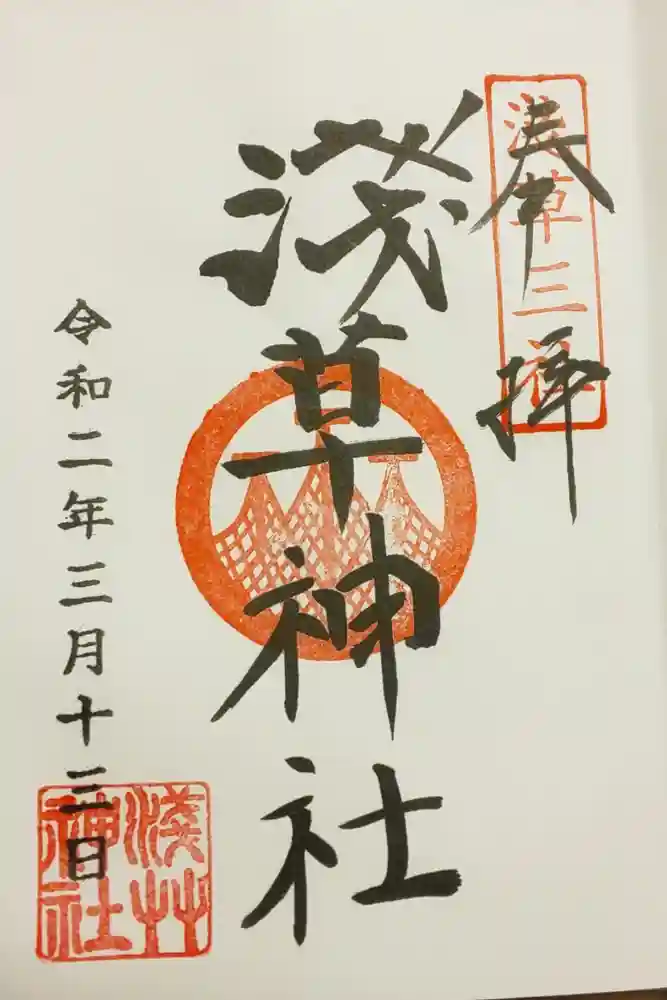 奉拝
浅草三社
淺草神社
令和二年三月十三日
淺草神社